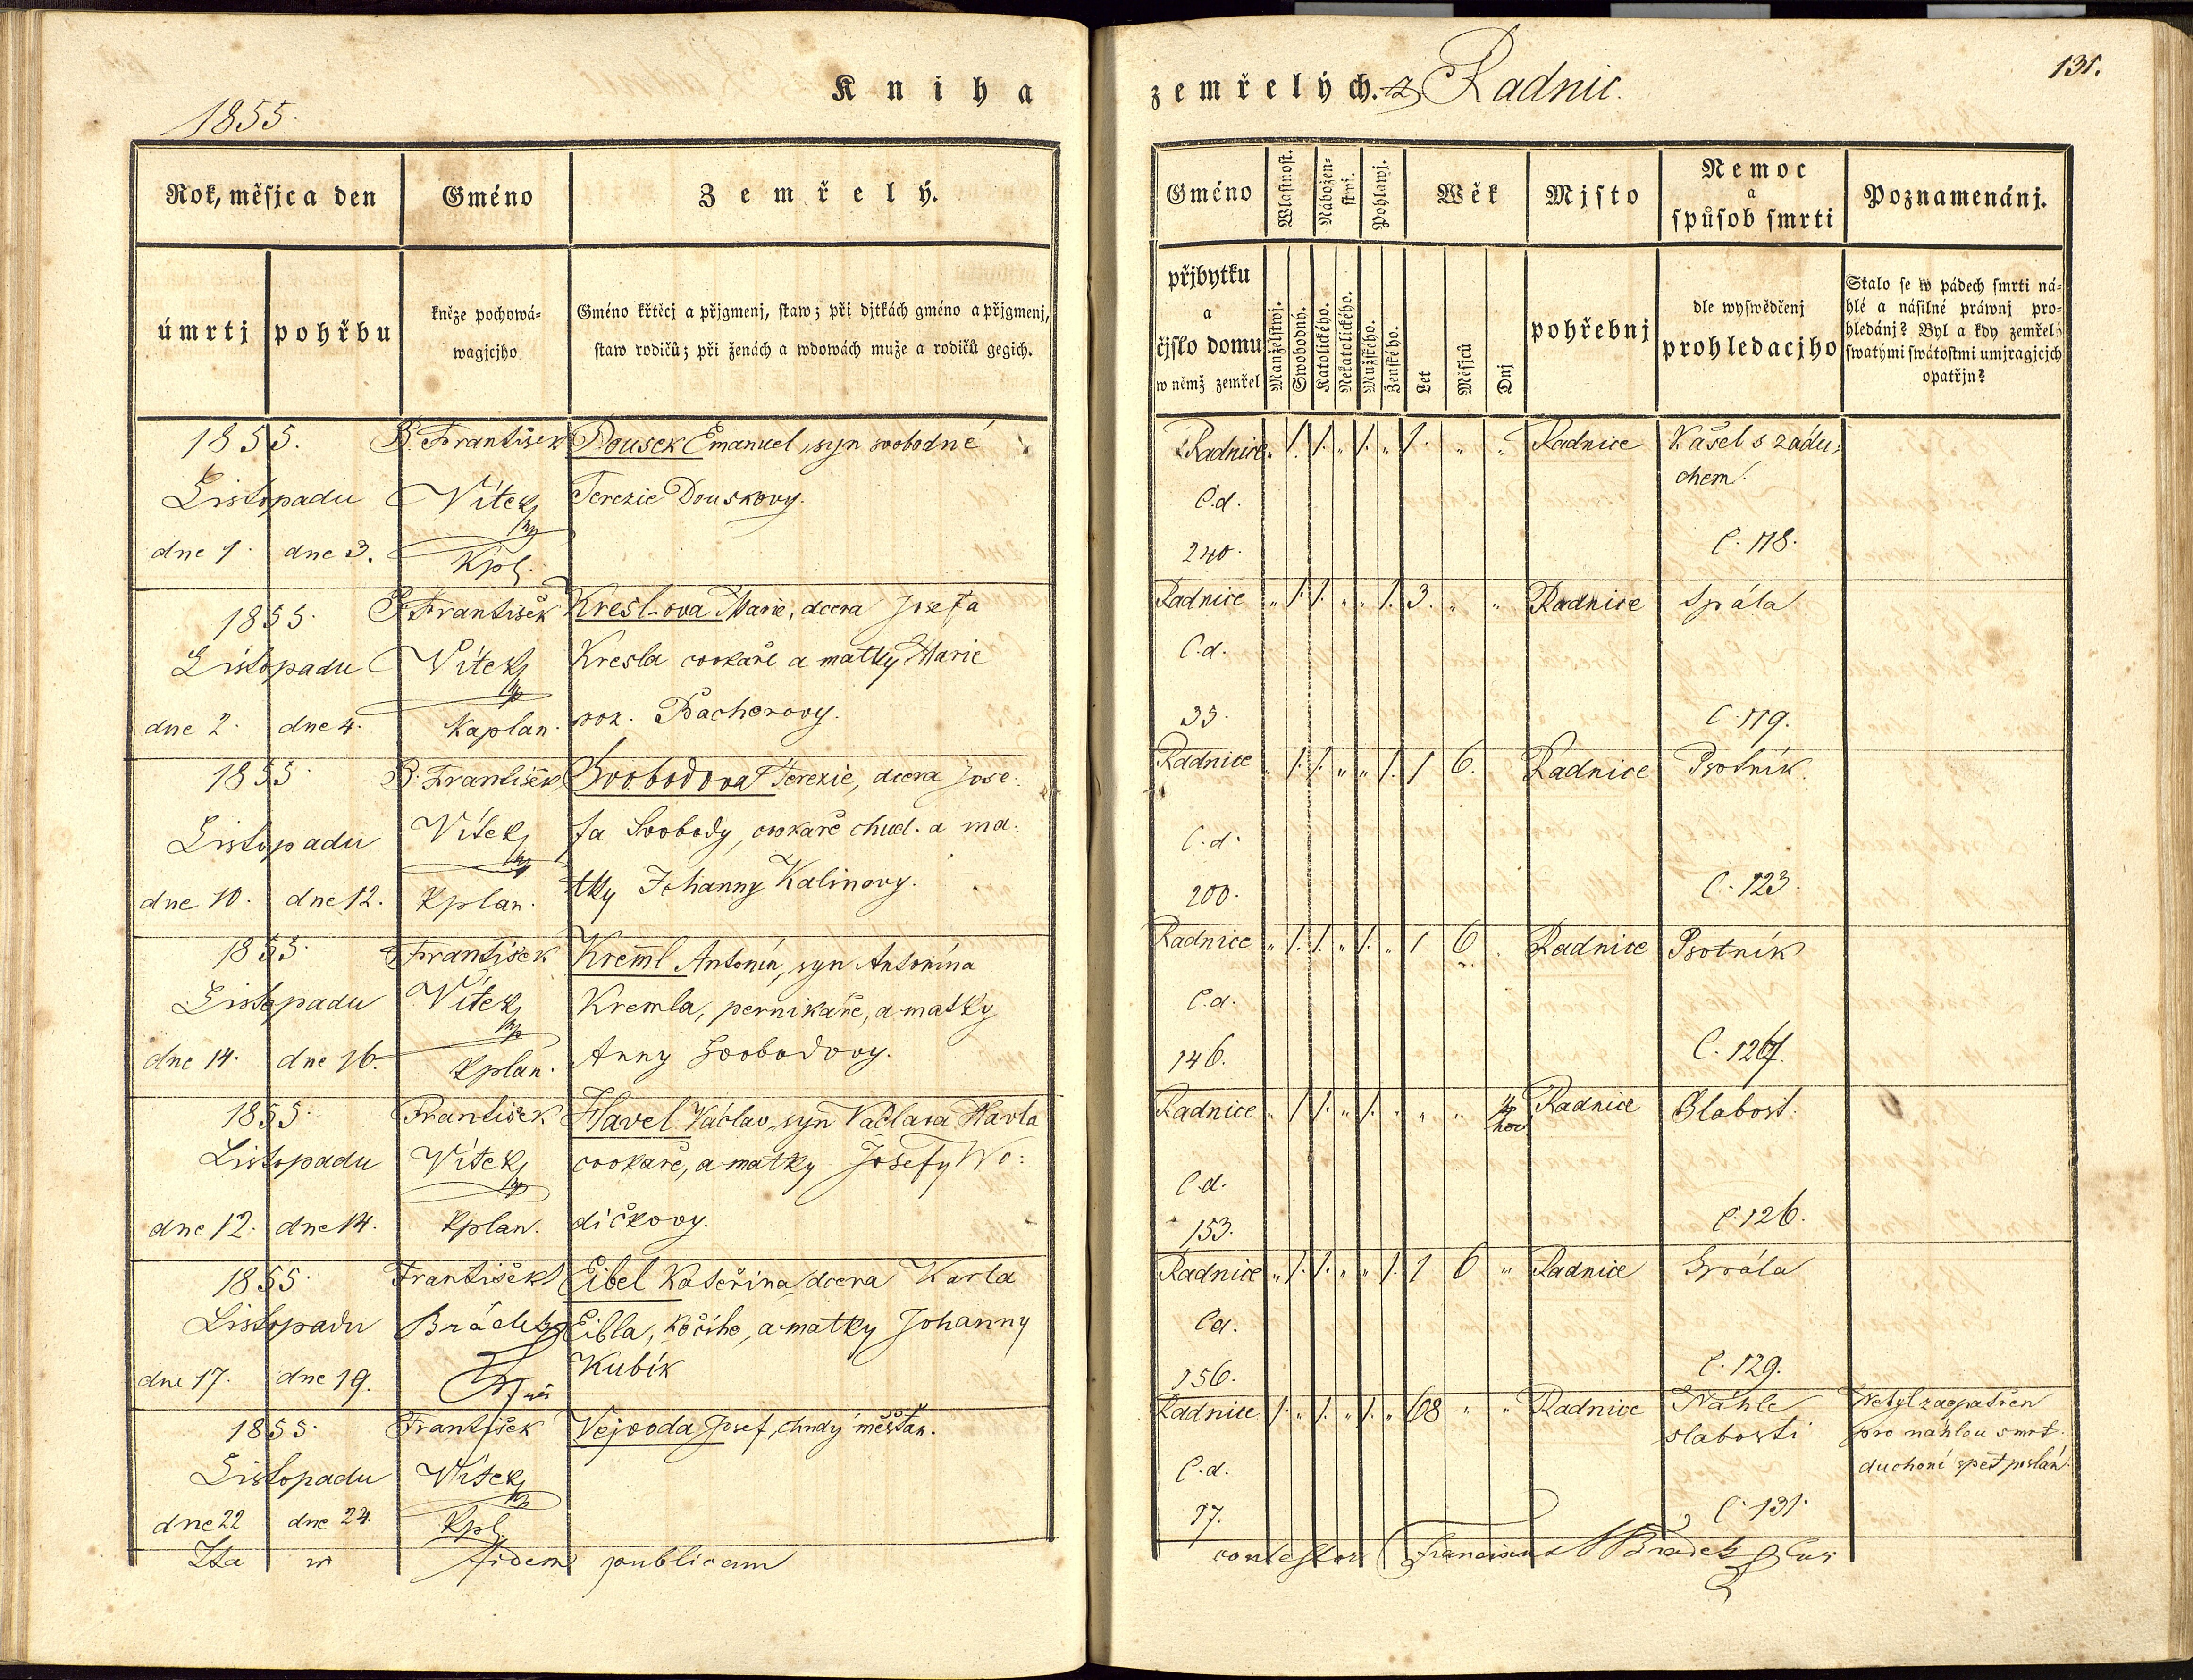 1855.
Kniha
zemřelých. z Radnic.
131.
Rok, měsjc a den
Gméno
Zemřelý.
úmrtj
pohřbu
kněze pochowá-
wagjcjho
Gméno křtěcj a přjgmenj, staw; při djtkách gméno a přjgmenj,
staw rodičů; při ženách a wdowách muže a rodičů gegich.
Gméno
Wlastnost.
Nábožen-
stwj.
Pohlawj.
Wěk
Mjsto
Nemoc
a
spůsob smrti
Poznamenánj.
přjbytku
a
čjslo domu
w němž zemřel
Manželstwj.
Swobodný.
Katolického.
Nekatolického.
Mužského.
Ženského.
Let
Měsjců
Dnj
pohřebnj
dle wyswědčenj
prohledacjho
Stalo se w pádech smrti ná-
hlé a násilné práwnj pro-
hledánj? Byl a kdy zemřelý
swatými swátostmi umjragjcjch
opatřjn?
1855. P. František Dousek Emanuel, syn svobodné
Listopadu Vítek Terezie Douskovy.
dne 1. dne 3. Kpl.
Radnice „ 1. 1. „ 1. „ 1. „ „ Radnice Kašel s zádu-
chem.
C.d.
240. C. 118.
1855. P. František Kreslova Marie, dcera Josefa
Listopadu Vítek Kresla cvokaře a matky Marie
dne 2. dne 4. Kaplan. roz. Bacherovy.
Radnice „ 1. 1. „ „ 1. 3. „ „ Radnice Spála
C.d.
33. C. 119.
1855. P. František Svobodova Terezie, dcera Jose-
Listopadu Vítek fa Svobody, cvokaře chud. a ma-
dne 10. dne 12. Kplan. tky Johanny Kalinovy.
Radnice „ 1. 1. „ „ 1. 1 6. Radnice Psotník.
C.d.
200. C. 123.
1855. František Kreml Antonín, syn Antonína
Listopadu Vítek Kremla, pernikaře, a matky
dne 14. dne 16. Kplan. Anny Svobodovy.
Radnice „ 1. 1. „ 1. „ 1 6 Radnice Psotník
C.d.
146. C. 127.
1855. František Havel Václav, syn Václava Havla
Listopadu Vítek cvokaře, a matky Josefy Vo-
dne 12. dne 14. Kplan. dičkovy.
Radnice „ 1 1. „ 1. „ „ „ Radnice Slabost.
C.d.
153. C. 126.
1855. František Eibel Kateřina, dcera Karla
Listopadu Brádek Eibla, kočího, a matky Johanny
dne 17. dne 19. Kubík
Radnice „ 1. 1. „ „ 1. 1 6 „ Radnice Spála
Cd.
156. C. 129.
1855. František Vejvoda Josef, chudý měšťan.
Listopadu Vítek
dne 22 dne 24. Kpl.
Radnice 1. „ 1. „ 1. „ 68 „ „ Radnice Náhle Nebyl zaopatřen
slabosti pro náhlou smrt.
C.d. duchoní zpět poslán.
97. C. 131.
Ita in fidem publicam contestor Franciscus Brádek